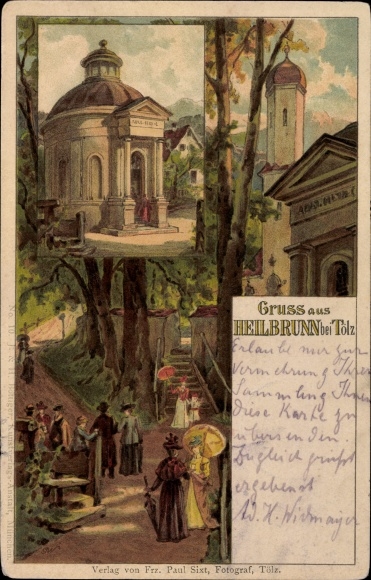 Gruss aus
HEILBRUNN bei Tölz
Erlaube mir zur
Vermehrung Ihrer
Sammlung Ihnen
Diese Karte zu
übersenden.
Zugleich grüßt
ergebenst
W. K. Widmayer
Verlag von Frz. Paul Sixt, Fotograf, Tölz.